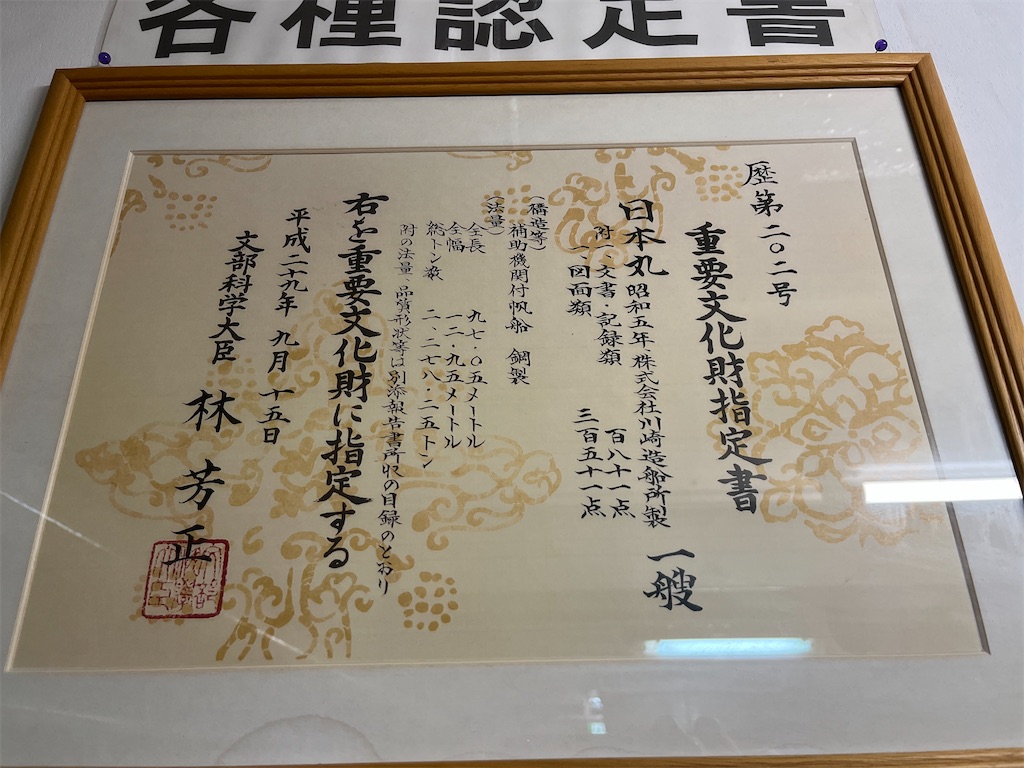 各種認定書
歴第二〇二号
重要文化財指定書
日本丸 昭和五年株式会社川崎造船所製 一艘
附 一、文書・記録類 百八十一点
一、図面類 三百五十一点
(構造等)
補助機関付帆船 鋼製
(法量)
全長 九七・〇五メートル
全幅 一二・九五メートル
総トン数 二、二七八・二五トン
附の法量、品質形状等は別添報告書所収の目録のとおり
右を重要文化財に指定する
平成二十九年九月十五日
文部科学大臣 林芳正